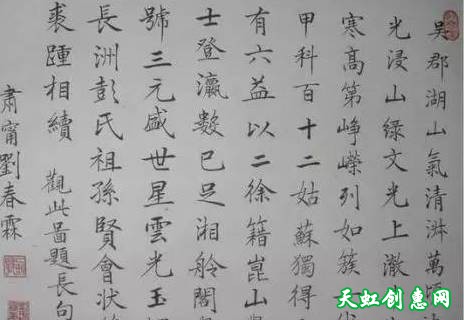 吳郡湖山氣清淋萬頃
光浸山綠文光上澈
寒高第崢嶸列如簇一
甲科百十二姑蘇獨得
有六益以二徐籍崑山
士登瀛數已足湘舲閣
號三元盛世星雲光玉
長洲彭氏祖孫賢會狀
裘踵相續 觀此啚題長句
肅甯劉春霖
天虹创意网